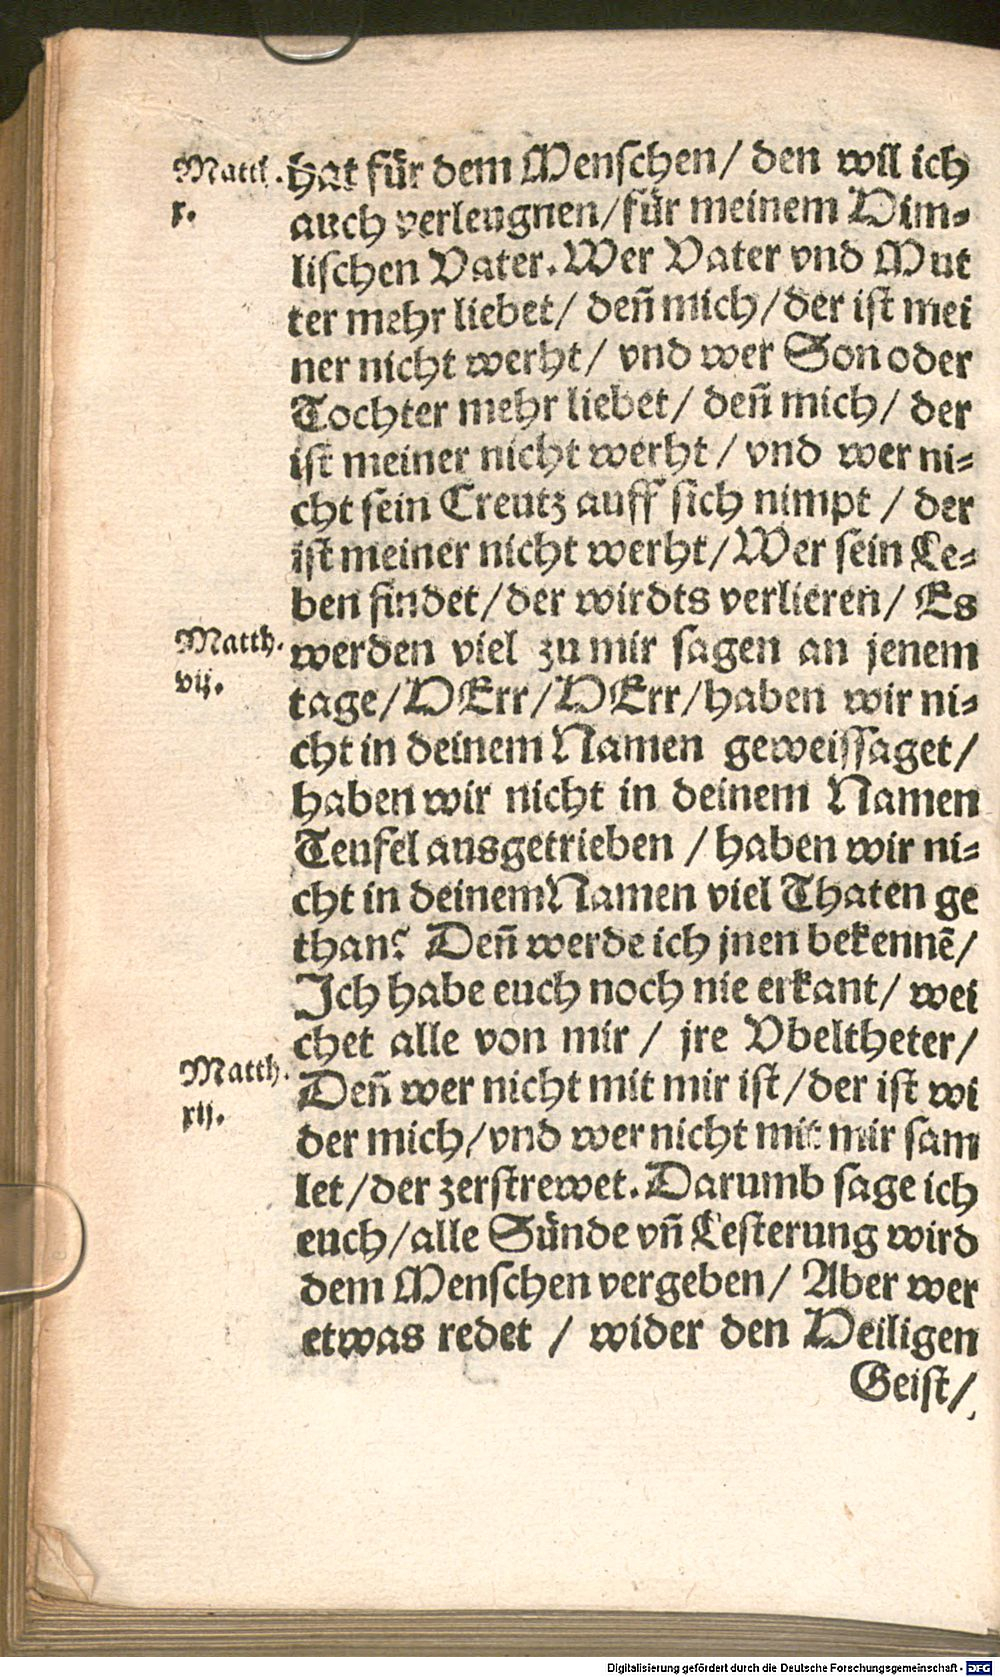 Matth.
x.
hat für dem Menschen/ den will ich
auch verleugnen/für meinem Him-
lischen Vater. Wer Vater vnd Mut
ter mehr liebet/ deñ mich/der ist mei
ner nicht werht/ vnd wer Son oder
Tochter mehr liebet/ deñ mich/ der
ist meiner nicht werht/ vnd wer ni-
cht sein Creutz auff sich nimpt / der
ist meiner nicht werht/Wer sein Le-
ben findet/der wirdts verlieren/ Es
Matth.
vij.
werden viel zu mir sagen an jenem
tage/HErr/HErr/haben wir ni-
cht in deinem Namen geweissaget/
haben wir nicht in deinem Namen
Teufel ausgetrieben / haben wir ni-
cht in deinem Namen viel Thaten ge
than? Deñ werde ich jnen bekennē/
Ich habe euch noch nie erkant/ wei
chet alle von mir / jre Vbeltheter/
Matth.
xij.
Deñ wer nicht mit mir ist/der ist wi
der mich/vnd wer nicht mit mir sam
let/der zerstrewet. Darumb sage ich
euch/alle Sünde vñ Lesterung wird
dem Menschen vergeben/ Aber wer
etwas redet / wider den Heiligen
Geist/
Digitalisierung gefördert durch die Deutsche Forschungsgemeinschaft - DFG